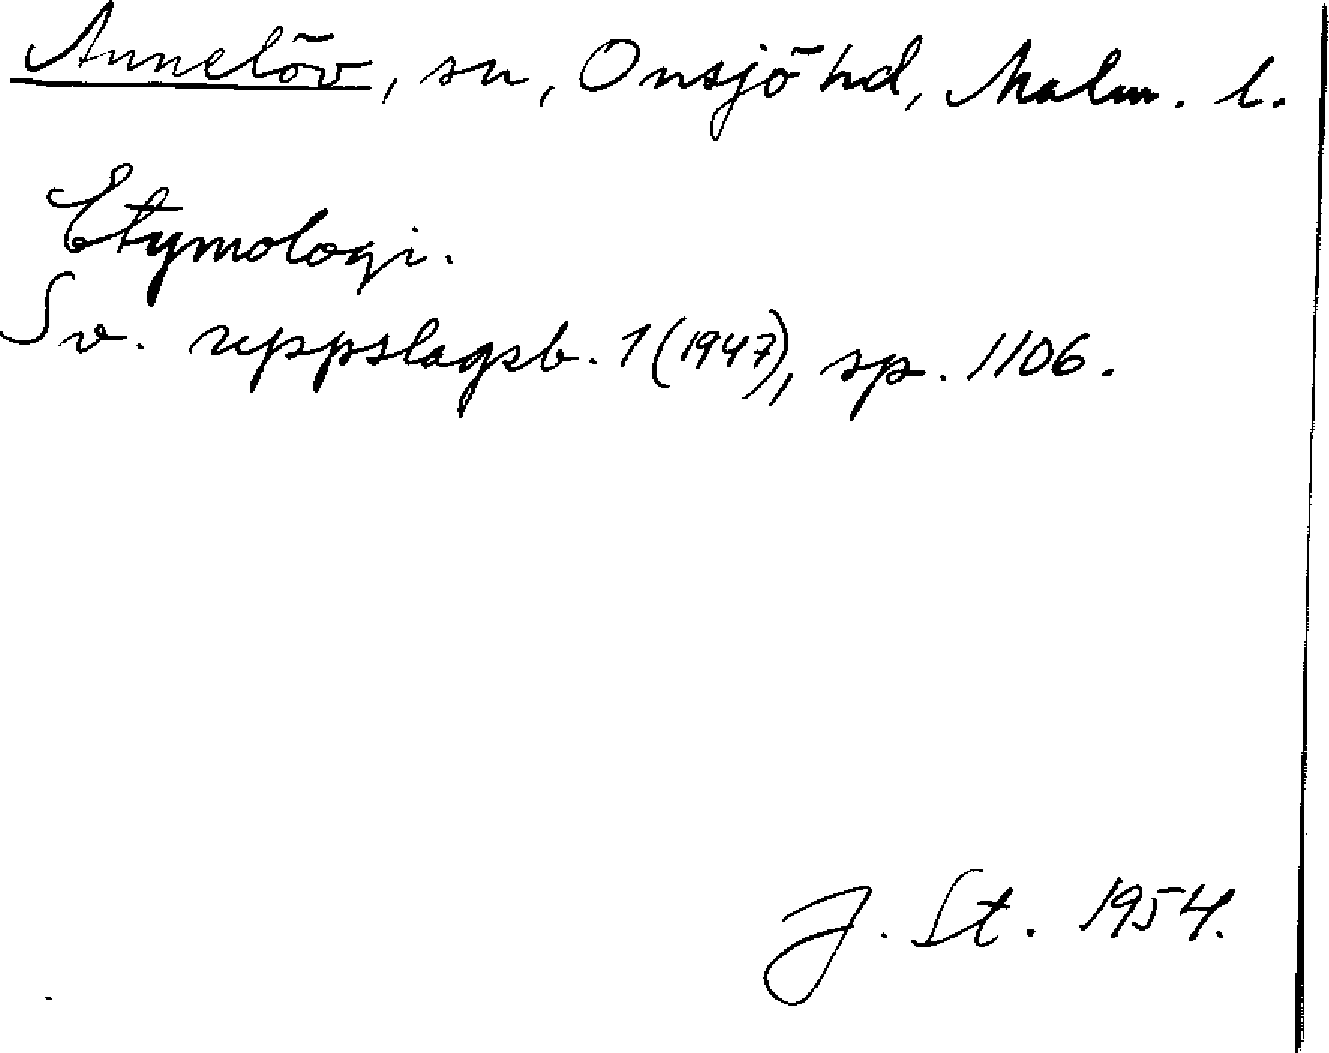 Annelöv, sn, Onsjö hd, Malm. l.
Etymologi.
Sv. uppslagsb. 1 (1947), sp. 1106.
J. St. 1954.